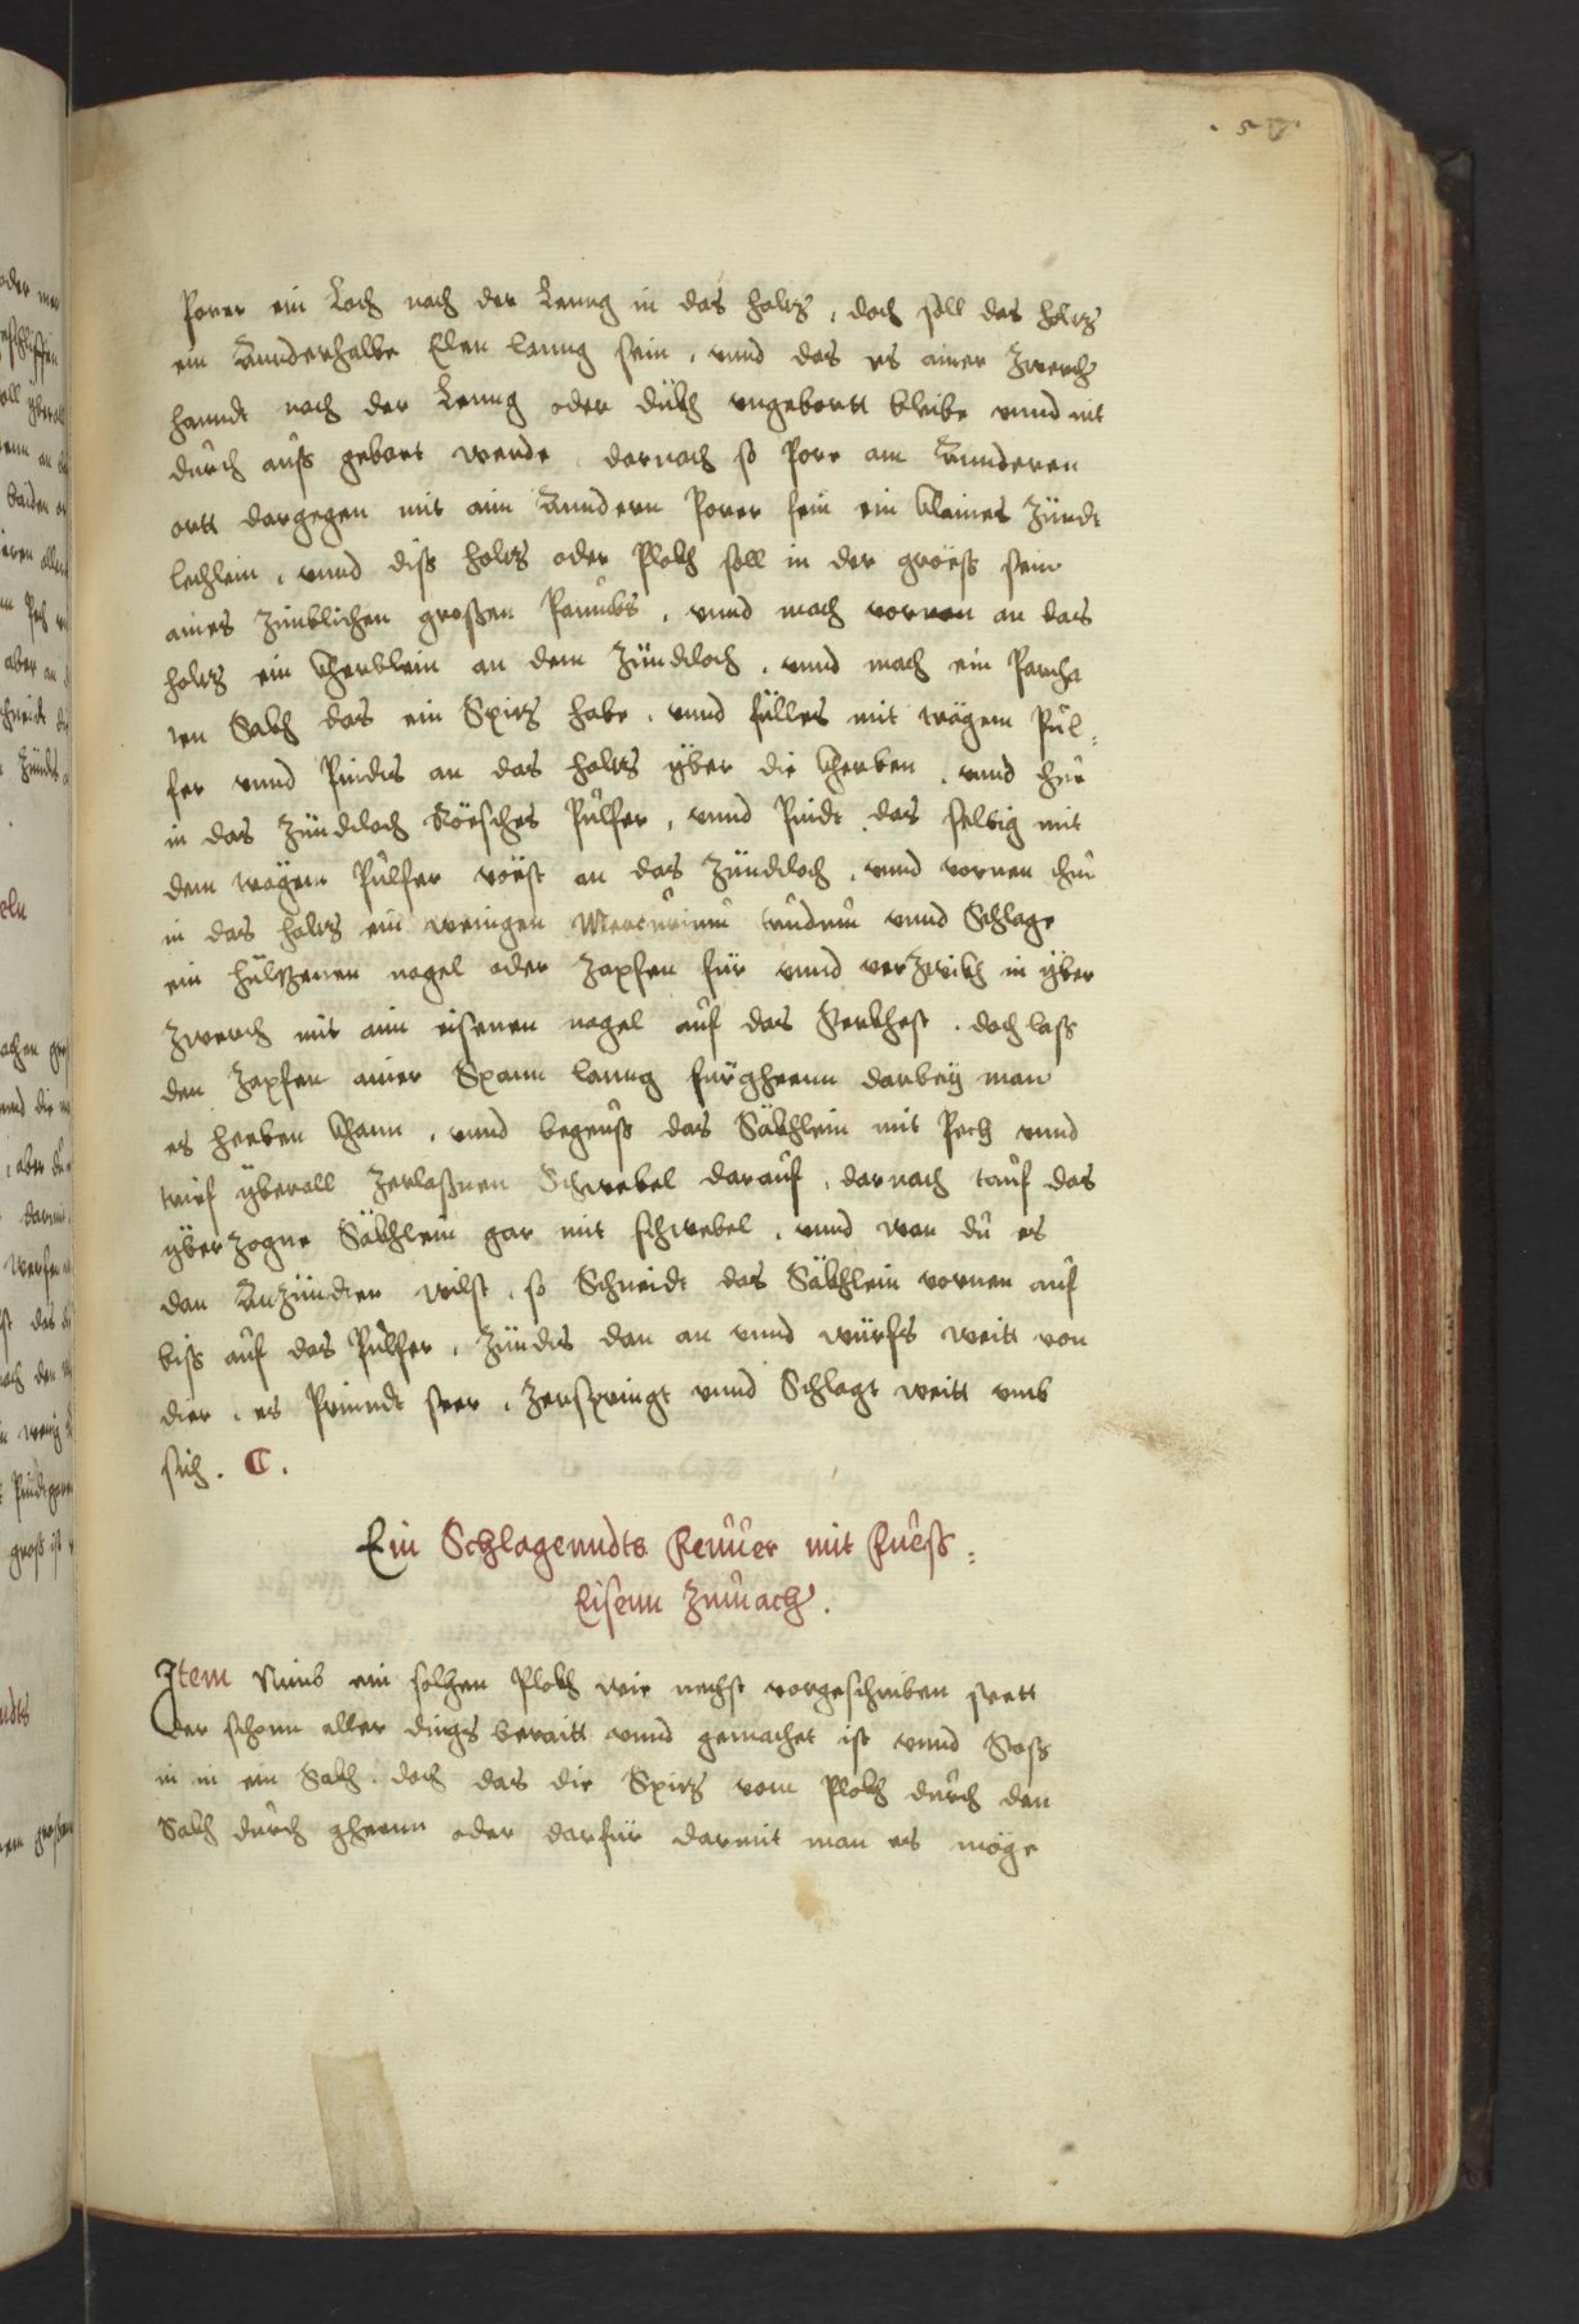 . 57.
Porer ein Loch nach der Leung in das holtz, doch soll das holtz
ein Annderhalbe Elen lanng sein, vnnd das es ainer Zwerch
hanndt nach der Leung oder dükh vngebortt bleibe vnnd nit
durch auß gebort werde darnach so Porr am Annderen
ortt dargegen mit ain Anndern Porer sein ein klaines Zündt
lechlein, vnnd diß holtz oder Plokh soll in der größ sein
aines Zimblichen großen Paumbs, vnnd mach vornen an das
holtz ein kherblein an dem Zündtloch, vnnd mach ein Parcha
ten Sakh das ein Spitz habe, vnnd fülles mit trägem Pul=
fer vnnd Pindts an das holtz yber die kherben, vnnd thue
in das Zündtloch Röesches Pulfer, vnnd Pindt das selbig mit
dem trägem Pulfer vöest an das Zündtloch, vnnd vornen thue
in das holtz ein weingen Mercurium Crudum vnnd Schlage
ein hültzenen nagel oder Zapfen für vnnd verZwikh in yber
Zwerch mit ain eisenen nagel auf das Sterkhest. doch laß
den Zapfen ainer Spann lanng fürgheenn darbey man
es heeben khann, vnnd begeuß das Säkhlein mit Pech vnnd
trief yberall Zerlaßnen Schwebel darauf, darnach tauf das
yberzogne Säkhlein gar mit schwebel, vnnd wan du es
dan Anzündten wilst, so Schneidt das Säkhlein vornen auf
biß auf das Pulfer, Zündts dan an vnnd würfs weitt von
dier, es Prinndt seer, Zerspringt vnnd Schlagt weitt vmb
sich. C.
Ein Schlagenndts Feuuer mit Fueß=
Eisenn Zumach.
Item Nimb ein solchen Plokh wie nechst vorgeschriben stett
Der schonn aller dings beraitt vnnd gemachet ist vnnd Stoß
in in ein Sakh. doch das die Spitz vom Plokh durch den
Sakh durch gheenn oder darfür darmit man es möge